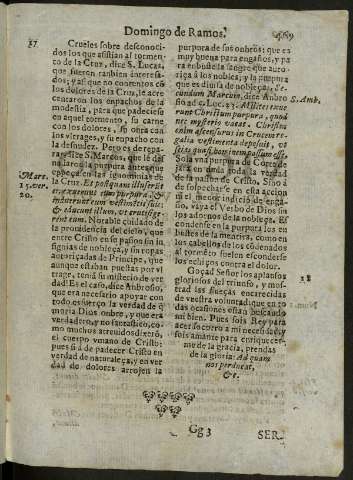 Domingo de Ramos. 469
17
Crueles sobre desconocidos los que asistian al tormento
de la Cruz, dize S. Lucas,
que fueron tanbien interesados;
y asi que no contentos cõ
los dolores de la Cruz, le acrecentaron
los enpachos de la
modestia, para que padeciese
en aquel tormento, su carne
con los dolores, su
con
los vltrages, y su enpacho con
la desnudez. Pero es de
S. Marcos, que le
la purpura antes que
enpeçase en las ignominias de
la Cruz. Et postquam illuserũt
ei, exuerunt eum purpura, &
induerunt eum vestimetis suis:
& educunt illum, vt crucifigerent
eum. Notable cuidado de
la prouidencia del cielo, que
entre Cristo en su pasion sin insignias
de nobleza, y sin ropas
autoriçadas de Principe, que
aunque estaban puestas por vltrage,
tenia su misterio de verdad!
Es el caso, dize Ambrosio,
que era necesario apoyar con
todo esfuerço la verdad de
moria Dios onbre, y que era
verdadero, y no fantastico, como
muchos atreuidos dixerõ,
el cuerpo vmano de Cristo:
pues si à de padecer Cristo en
verdad de naturaleça, y en verdad
de dolores arrojen la
Marc.
15. ver.
20.
purpura de sus onbros: que es
muy buena para engaños, y para
la sangre que autoriça
à los nobles; y la purpura
que es diuisa de nobleça,
secundum Marcum, dize Ambrosio
ad c. Luc. 23. Milites exuerunt
Christum purpura, quod
nec mysterio vacat. Christus
enim ascensurus in Crucem regalia
vestimenta deposuit, vt
scias quasi hominem passum esse.
Sola vna purpura de Corte dexara
en duda toda la verdad
de la pasion de Cristo. Sino à
de sospecharse en esta accion
ni el menor indicio de engaño,
vaya el Verbo de Dios sin
los adornos de la nobleça. Escondense
en la purpura los enbustes
de la mentira, como en
los cabellos de los condenados
al tormento suelen esconderse
los echiços contra el dolor.
S. Amb.
Goçad Señor los aplausos
gloriosos del triunfo, y mostrad
las fineças encarecidas
de vuestra voluntad: que en todas
ocasiones estais buscando
mi bien. Pues sois Rey para
acer socorro à mi necesidad, y
sois amante para enriquecerme
de la gracia, prendas
de la gloria: Ad quam
nos perducat,
&c.
18
Gg 3
SER-